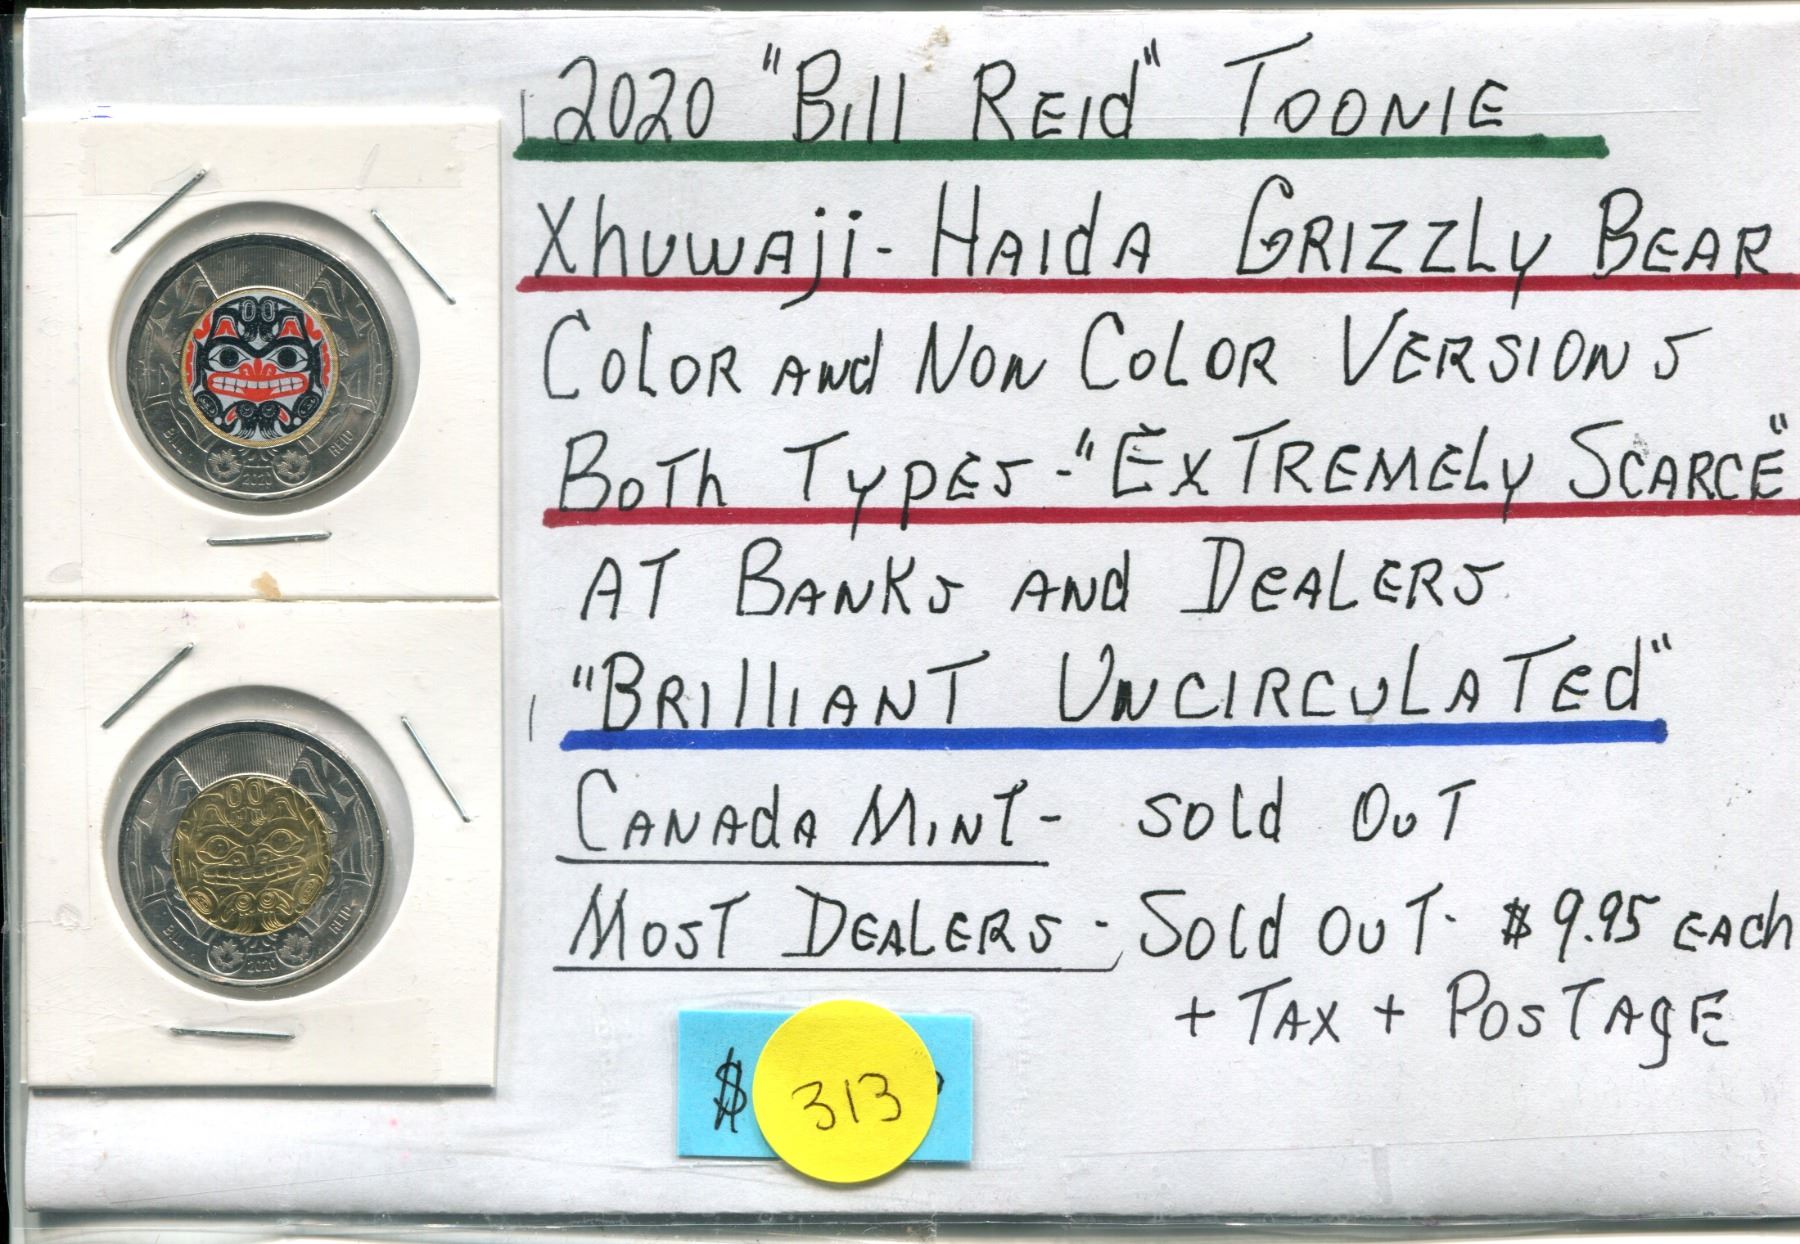 2020 "Bill Reid" Toonie
Xhuwaji - Haida Grizzly Bear
Color and Non Color Versions
Both Types - "Extremely Scarce"
At Banks and Dealers
"Brilliant Uncirculated"
Canada Mint - Sold Out
Most Dealers - Sold Out - $9.95 each
+ Tax + Postage
$
313
BILL REID
2020
BILL REID
2020